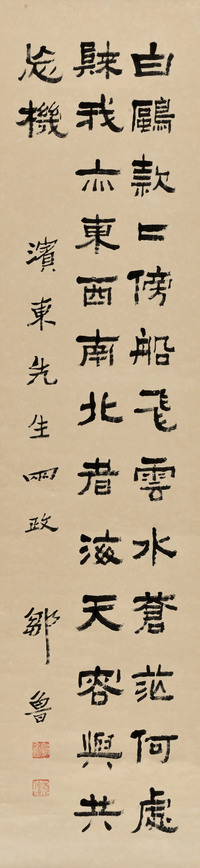 白鷗款〻傍船飛雲水蒼茫何處
歸我亦東西南北者海天容與共
忘機
濱東先生兩政 鄒魯